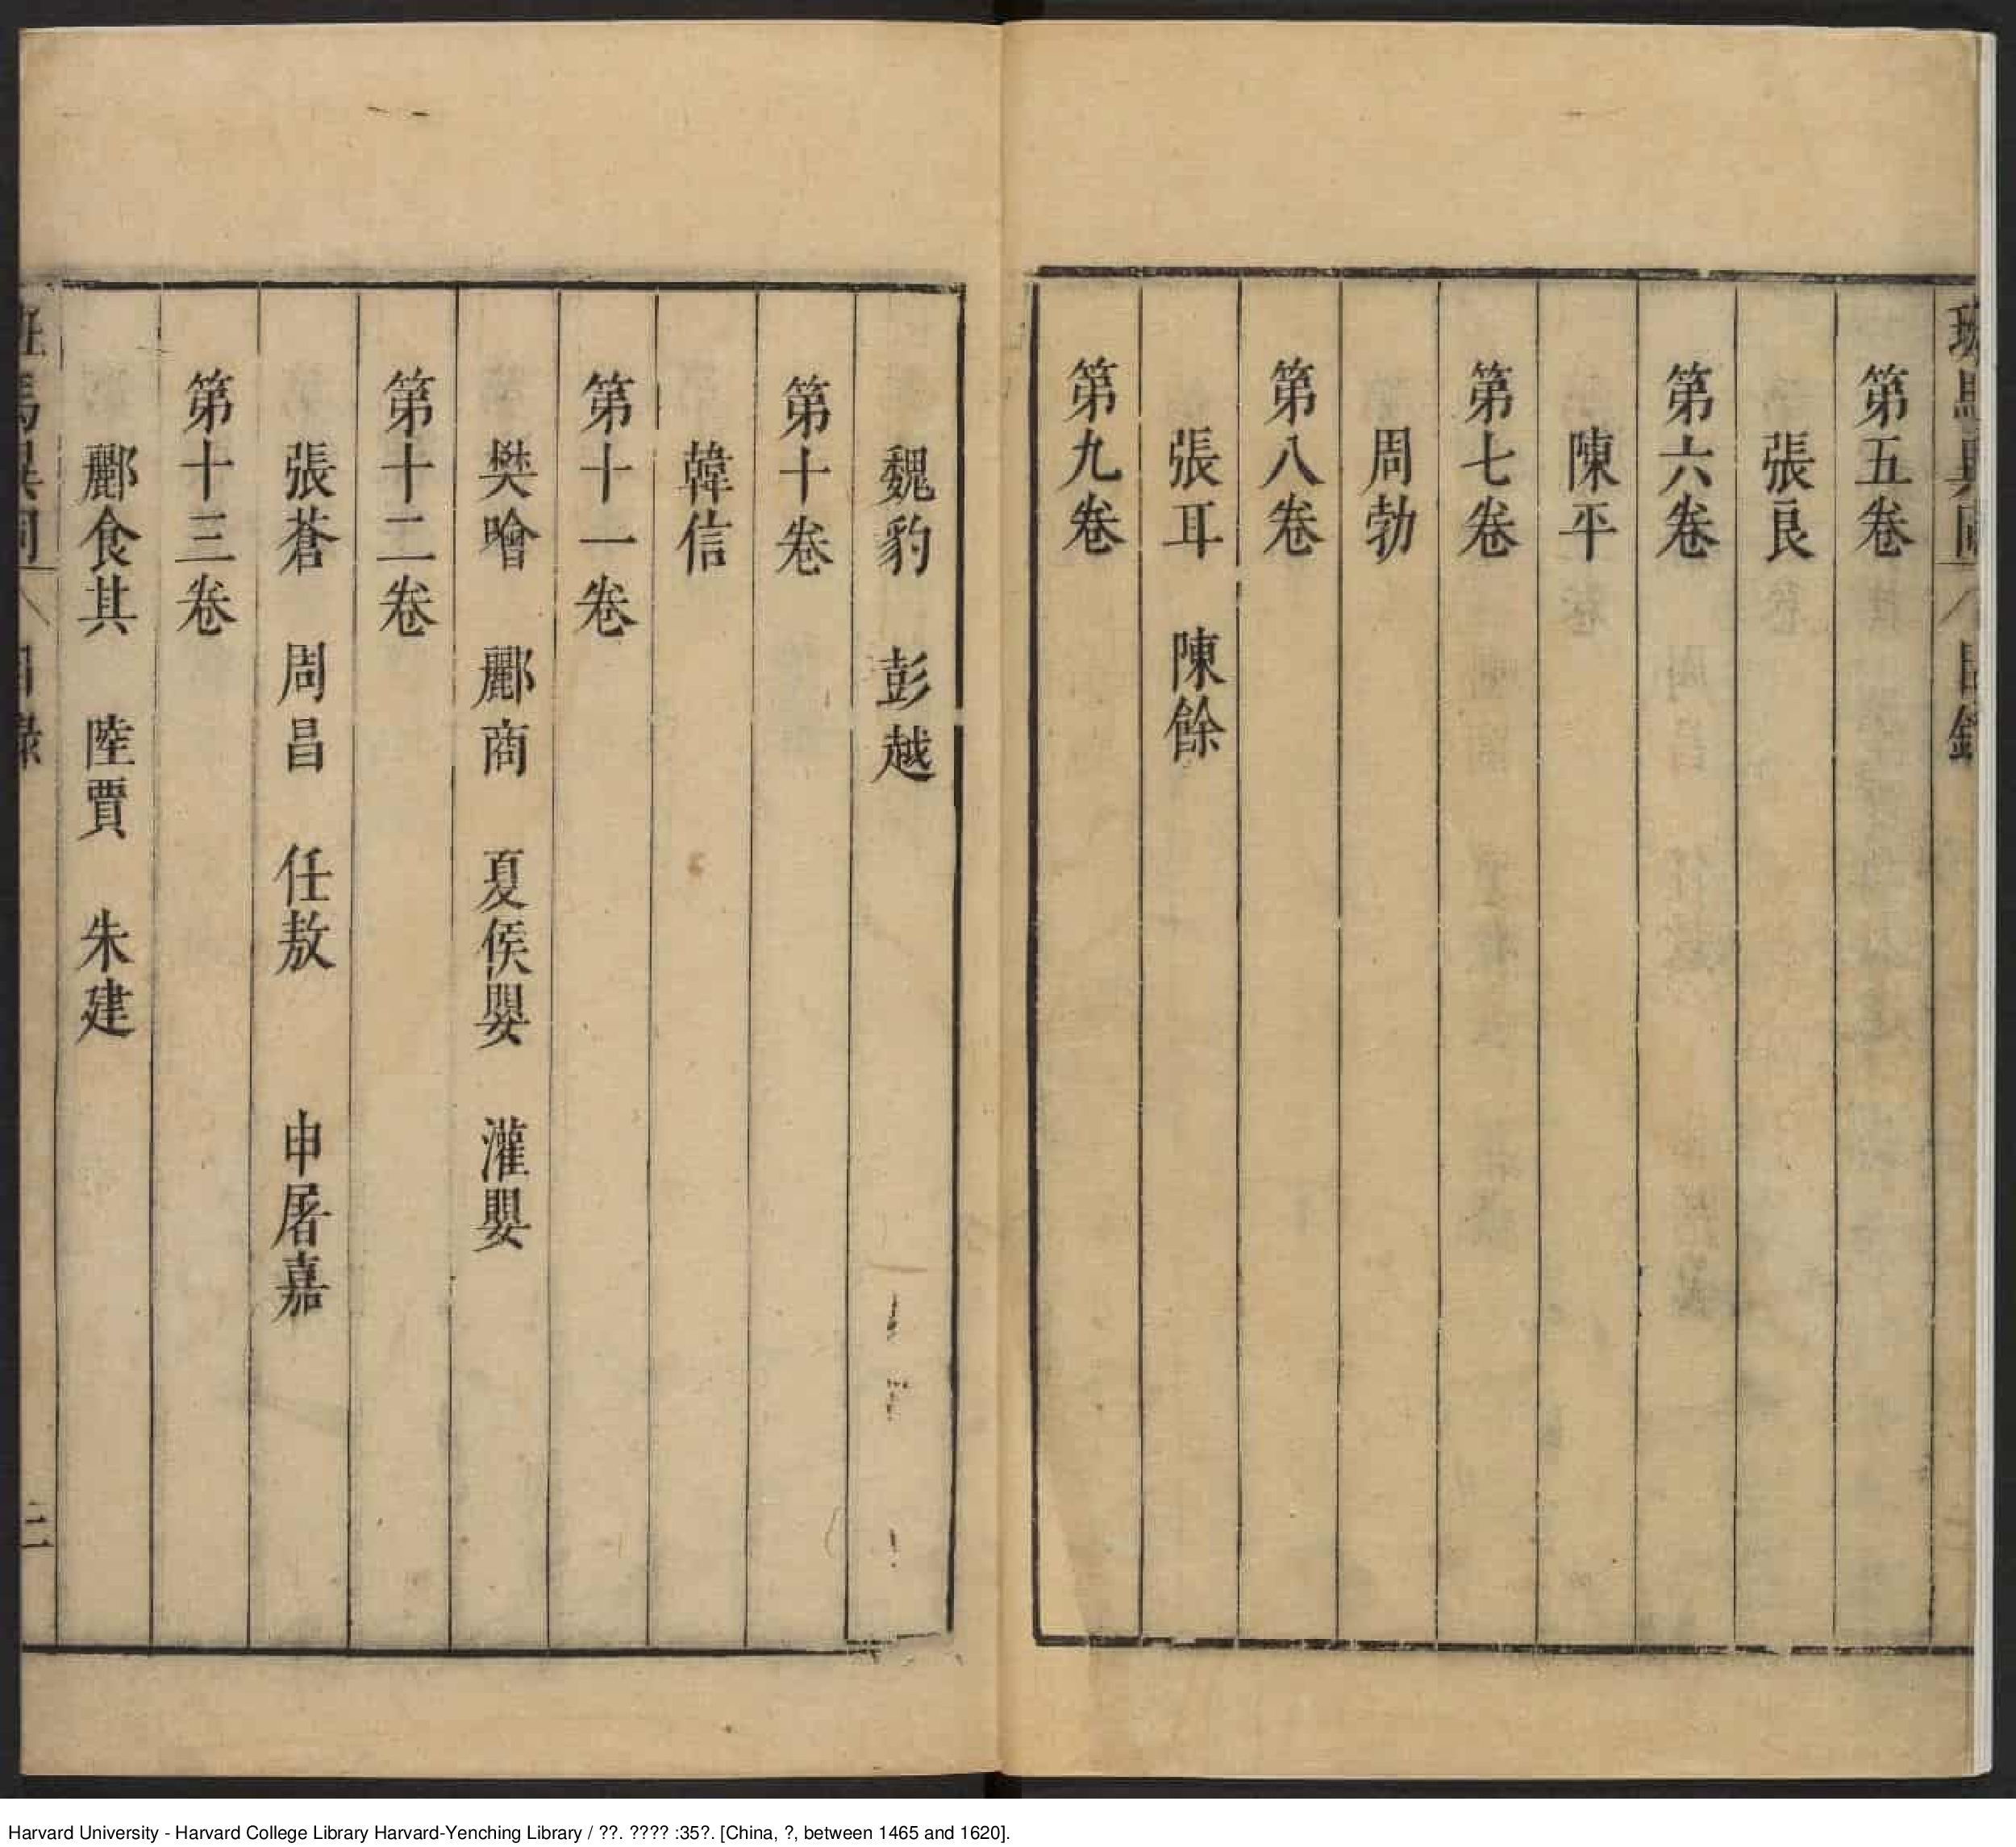 第五卷
張良
第六卷
陳平
第七卷
周勃
第八卷
張耳　陳餘
第九卷
魏豹　彭越
第十卷
韓信
第十一卷
樊噲　酈商　夏侯嬰　灌嬰
第十二卷
張蒼　周昌　任敖　申屠嘉
第十三卷
酈食其　陸賈　朱建
Harvard University - Harvard College Library Harvard-Yenching Library / ??. ???? :35?. [China, ?, between 1465 and 1620].